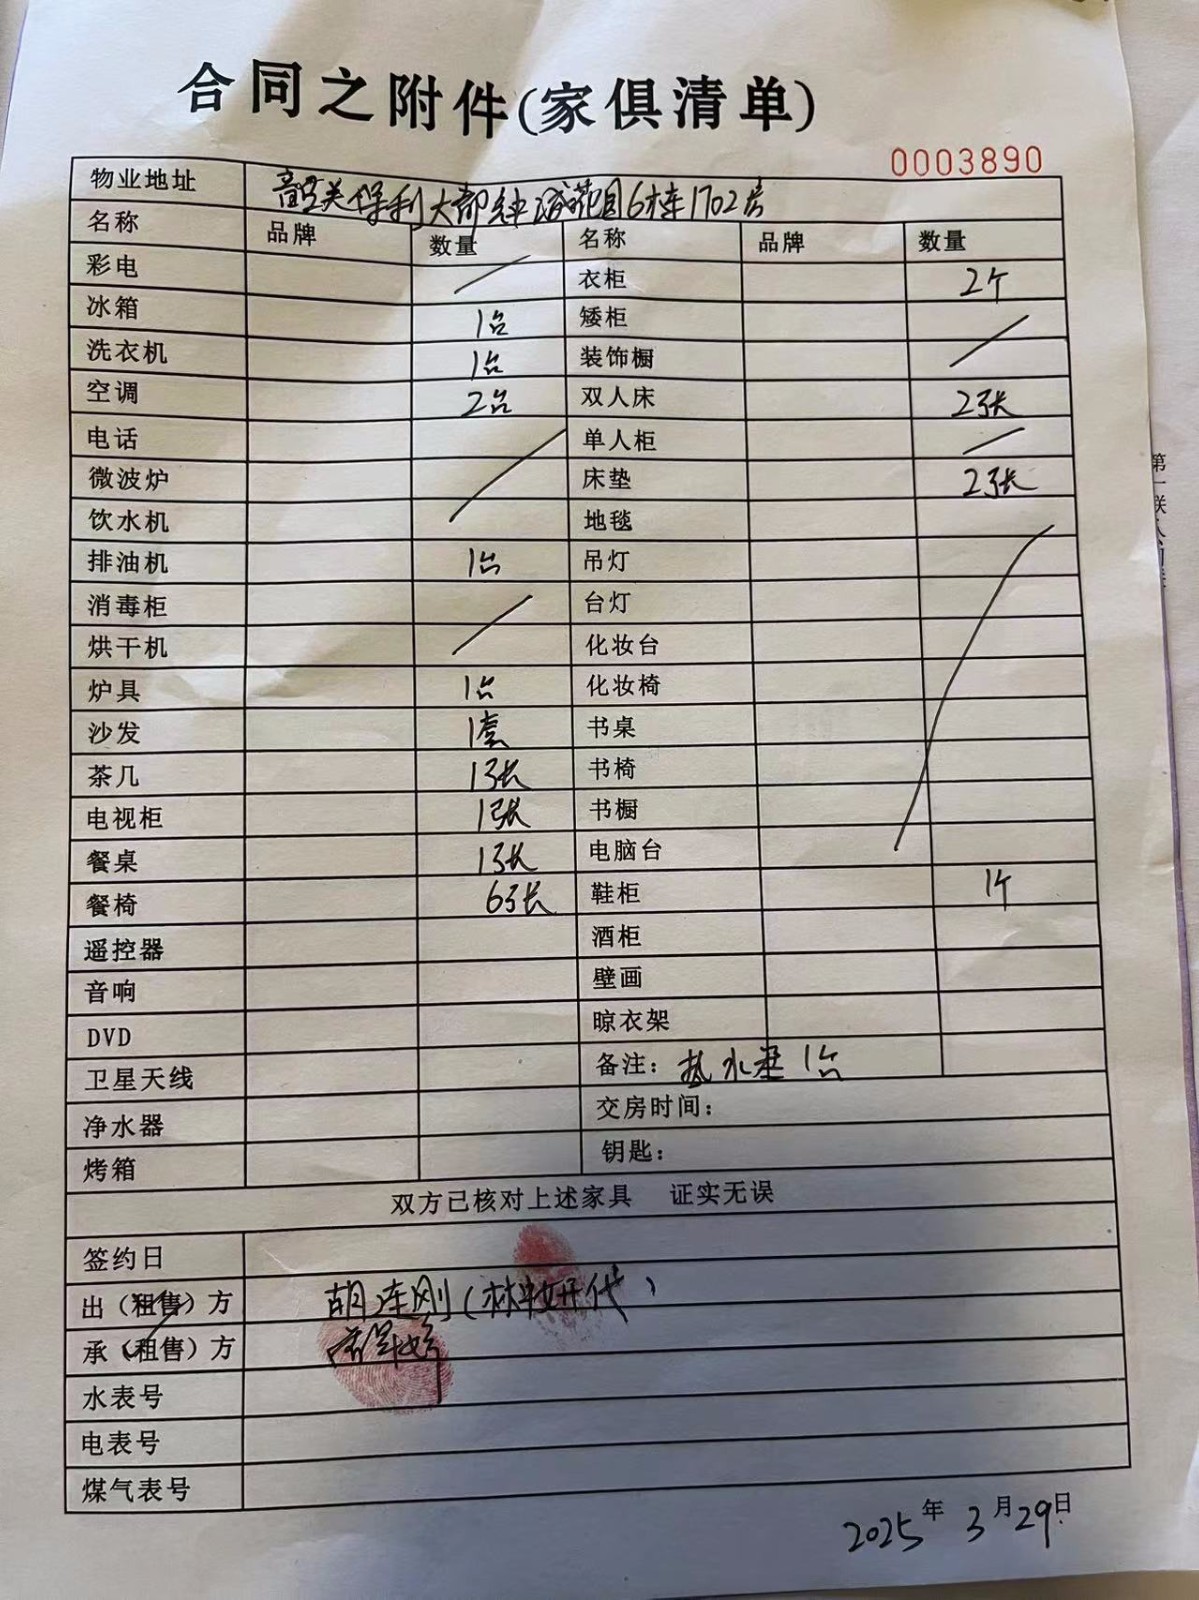 合同之附件(家俱清单)
0003890
物业地址 保利大都 花园6栋1702房
名称 品牌 数量 名称 品牌 数量
彩电 衣柜 2个
冰箱 1台 矮柜
洗衣机 1台 装饰橱
空调 2台 双人床 2张
电话 单人柜
微波炉 床垫 2张
饮水机 地毯
排油机 1台 吊灯
消毒柜 台灯
烘干机 化妆台
炉具 1台 化妆椅
沙发 1套 书桌
茶几 1张 书椅
电视柜 1张 书橱
餐桌 1张 电脑台
餐椅 6张 鞋柜 1个
遥控器 酒柜
音响 壁画
DVD 晾衣架
卫星天线 备注：热水器1台
净水器 交房时间：
烤箱 钥匙：
双方已核对上述家具 证实无误
签约日
出（租售）方 胡连刚（林 妍代）
承（租售）方
水表号
电表号
煤气表号
2025年3月29日
第一联